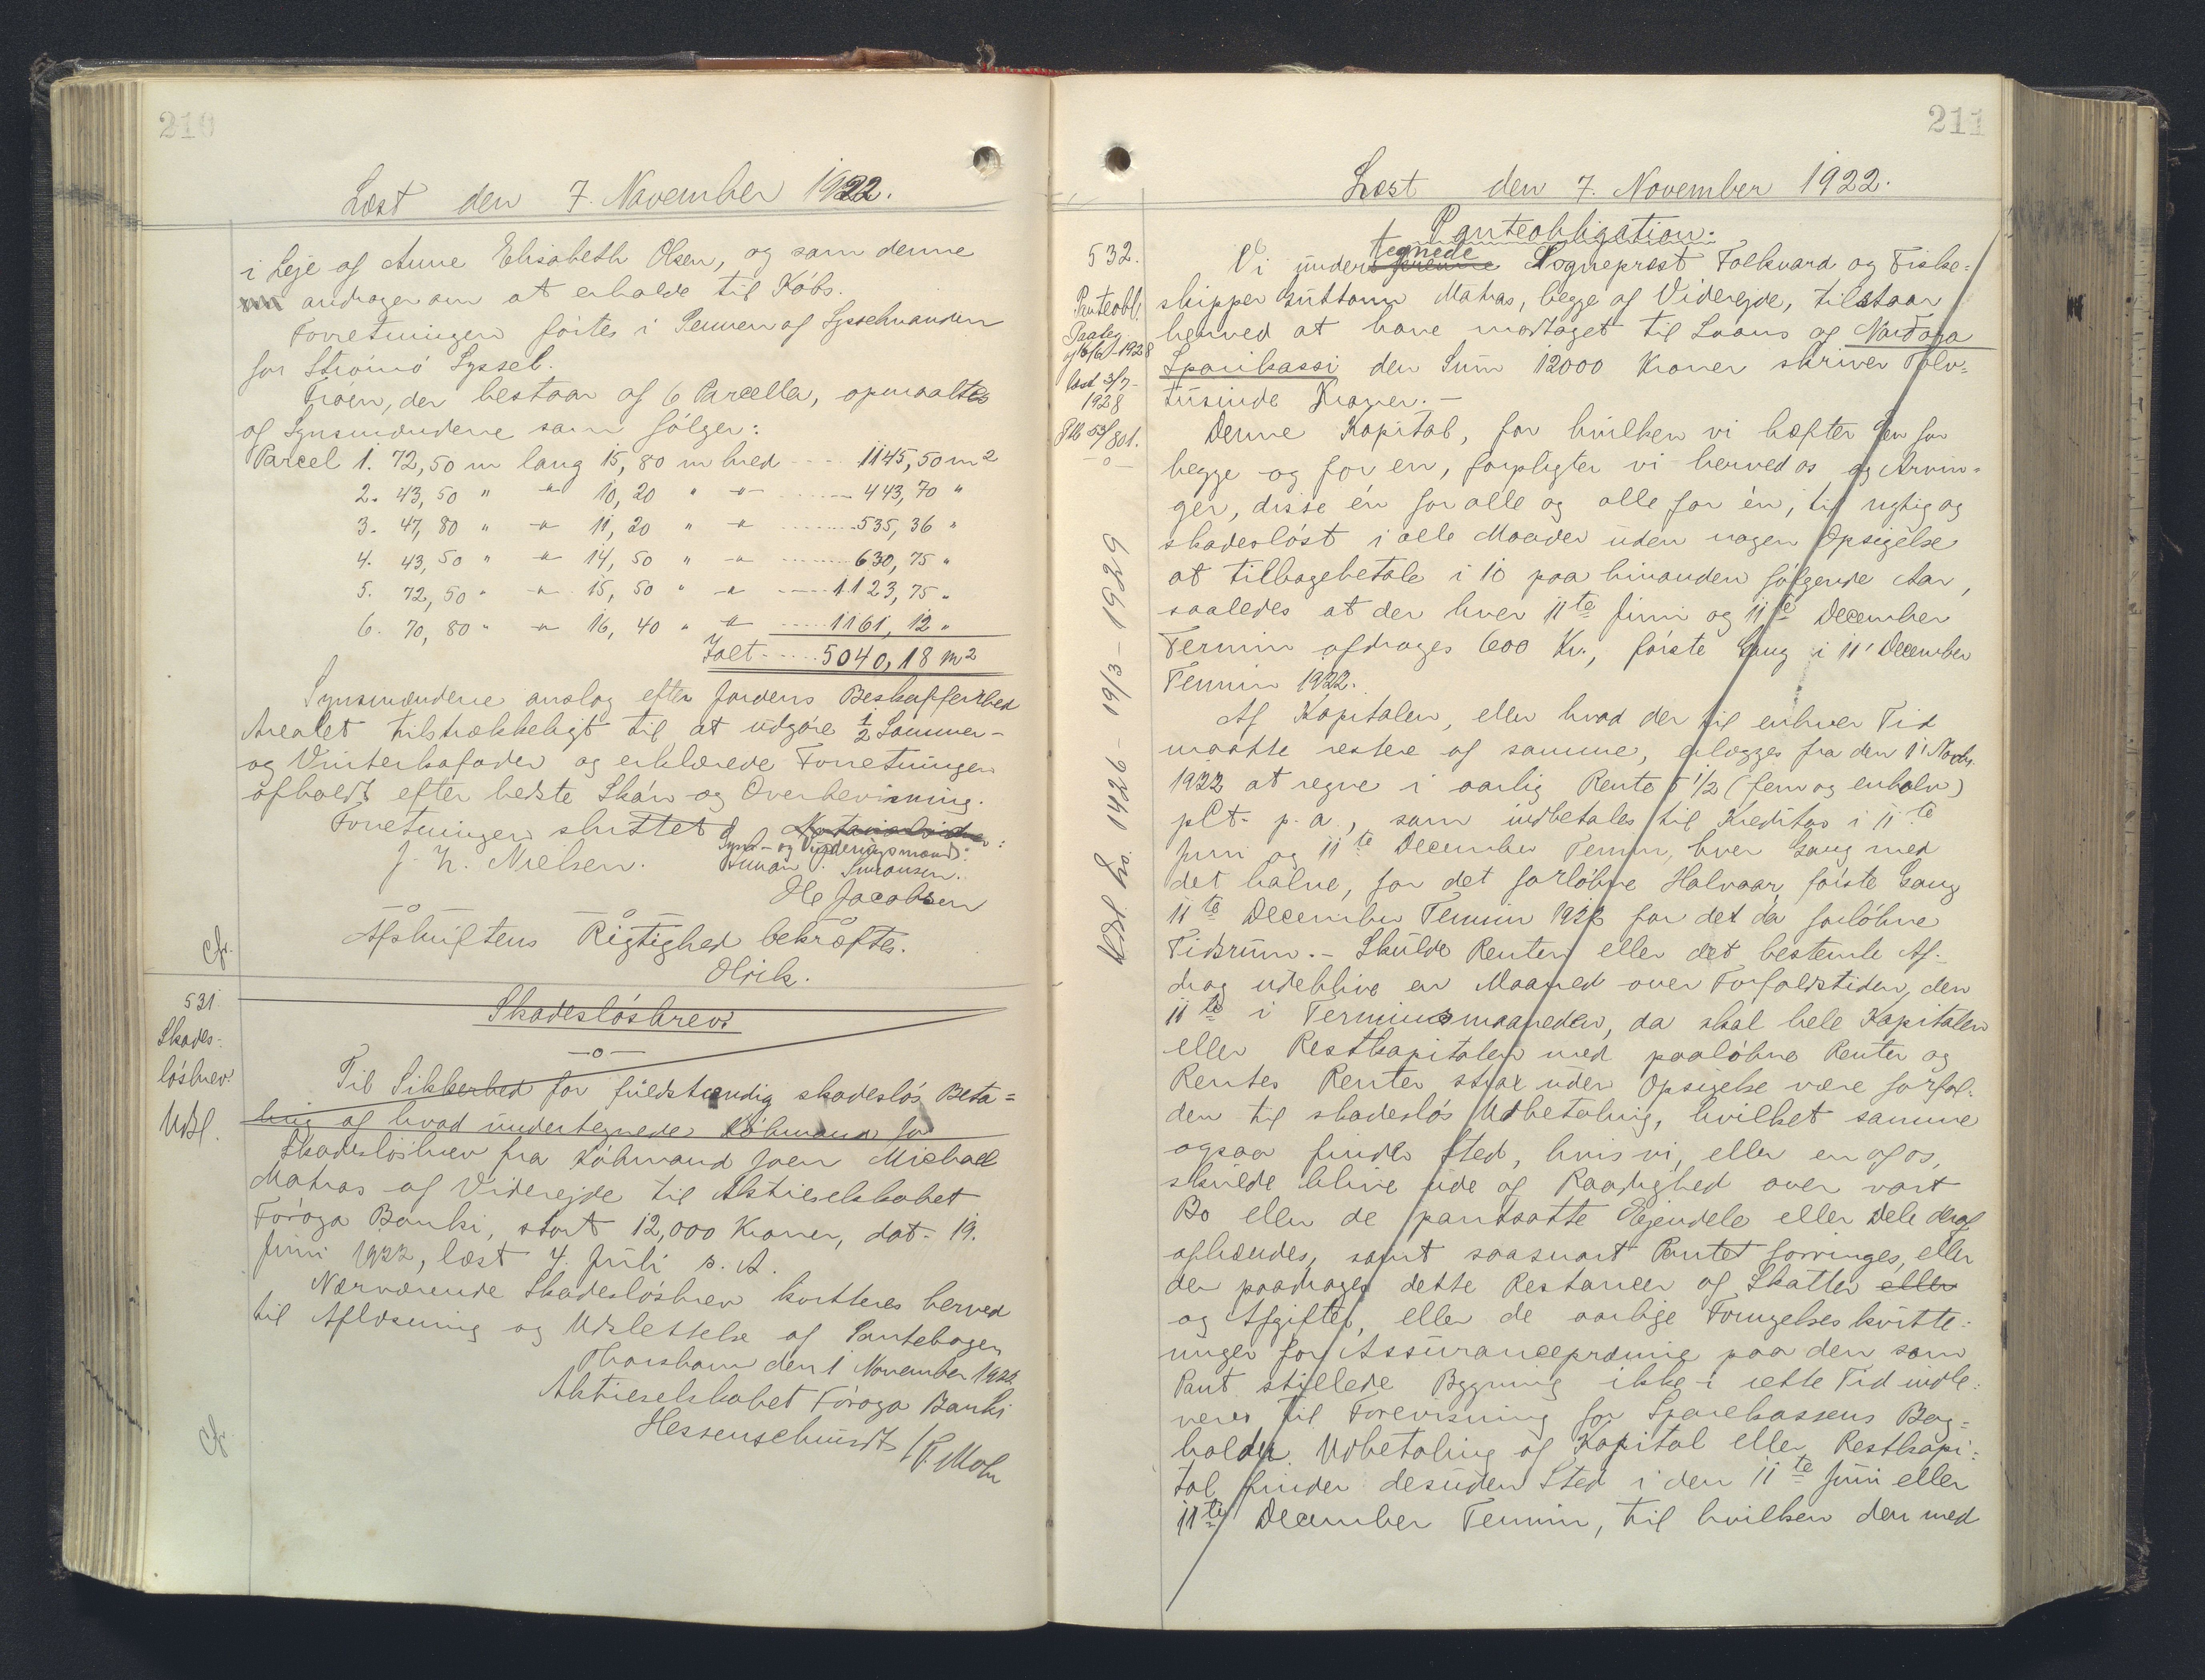 210
Læst den 7. November 1922.
i Leje af Anne Elisabeth Olsen, og som denne
andrager om at erholde til Købs.
Forretningen førtes i Pennen af Sysselmanden
for Strømø Syssel.
Trøen, der bestaar af 6 Parceller, opmaaltes
af Synsmændene som følger:
Parcel 1. 72,50 m lang 15,80 m bred - - - 1145,50 m2
2. 43,50 " -"- 10,20 " -"- - - - 443,70 "
3. 47,80 " -"- 11,20 " -"- - - - 535,36 "
4. 43,50 " -"- 14,50 " -"- - - - 630,75 "
5. 72,50 " -"- 15,50 " -"- - - - 1123,75 "
6. 70,80 " -"- 16,40 " -"- - - - 1161,12 "
Ialt - - - 5040,18 m2
Synsmændene anslog efter Jordens Beskaffenhed
Arealet tilstrækkeligt til at udgøre 1/2 Sommer-
og Vinterkofoder og erklærede Forretningen
afholdt efter bedste Skøn og Overbevisning.
Forretningen sluttet
Syns- og Vurderingsmænd:
J. N. Nielsen. Simonsen.
Ole Jacobsen
Afskriftens Rigtighed bekræftes.
cfr.
Olrik.
531.
Skades-
løsbrev.
Udsl.
Skadesløsbrev.
—o—
Til Sikkerhed for fuldstændig skadesløs Beta=
ling af hvad undertegnede Købmand Jo
Skadesløsbrev fra Købmand Joen Michael
Matras af Viderejde til Aktieselskabet
Føroya Banki, stort 12,000 Kroner, dat. 19.
Juni 1922, læst 4. Juli s. A.
Nærværende Skadesløsbrev kvitteres herved
til Aflæsning og Udslettelse af Pantebogen
Thorshavn den 1 November 1922
Aktieselskabet Føroya Banki
Hessenschmidt / P. Mohr
cfr.
211
Læst den 7. November 1922.
532.
Panteobl.
Paateg.
af 6/6-1928
læst 3/7-
1928
Fb 53/801.
—o—
Udsl. Prs. 1426 - 19/3 - 1929
Panteobligation.
tegnede
Vi under Sognepræst Folkvard og Fiske=
skipper Guttorm Matras, begge af Viderejde, tilstaar
herved at have modtaget til Laans af Nordoya
Sparikassi den Sum 12000 Kroner skriver Tolv=
tusinde Kroner.-
Denne Kapital, for hvilken vi hæfter én for
begge og for en, forpligter vi herved os og Arvin=
ger, disse én for alle og alle for én, til rigtig og
skadesløst i alle Maader uden nogen Opsigelse
at tilbagebetale i 10 paa hinanden følgende Aar,
saaledes at der hver 11te Juni og 11te December
Termin afdrages 600 Kr., første Gang i 11' December
Termin 1922.
Af Kapitalen, eller hvad der til enhver Tid
maatte restere af samme, erlægges fra den 1' Novbr.
1922 at regne i aarlig Rente 5 1/2 (fem og enhalv)
pCt. p. a., som indbetales til Kreditor i 11te
Juni og 11te December Termin, hver Gang med
det halve, for det forløbne Halvaar, første Gang
11te December Termin 1922 for det da forløbne
Tidsrum.- Skulde Renten eller det bestemte Af-
drag udeblive en Maaned over Forfaldstiden, den
11te i Terminsmaaneden, da skal hele Kapitalen
eller Restkapitalen med paaløbne Renter og
Rentes Renter strax uden Opsigelse være forfal-
den til skadesløs Udbetaling, hvilket samme
ogsaa finder Sted, hvis vi, eller en af os,
skulde blive ude af Raadighed over vort
Bo eller de pantsatte Ejendele eller Dele deraf
afhændes, samt saasnart Pantet forringes, eller
der paadrages dette Restancer af Skatter eller
og Afgifter, eller de aarlige Fornyelseskvitte-
ringer for Assurancepræmie paa den som
Pant stillede Bygning ikke i rette Tid indle-
veres til Forevisning for Sparekassens Bog-
holder. Udbetaling af Kapital eller Restkapi-
tal finder desuden Sted i den 11te Juni eller
11te December Termin, til hvilken den med